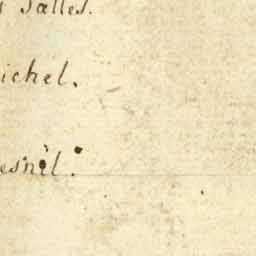 Salles.
ichel.
esnil.